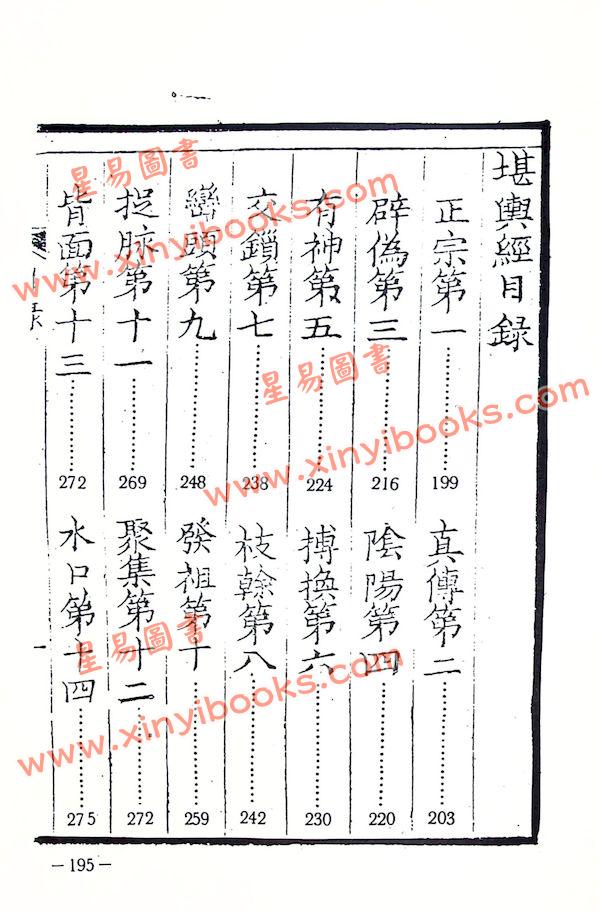 堪輿經目録
正宗第一 199
真傳第二 203
辟偽第三 216
陰陽第四 220
有神第五 224
搏換第六 230
交鎖第七 238
枝榦第八 242
巒頭第九 248
發祖第十 259
捉脉第十一 269
聚集第十二 272
背面第十三 272
水口第十四 275
一
－195－
星易圖書
www.xinyibooks.com
星易圖書
www.xinyibooks.com
星易圖書
www.xinyibooks.com